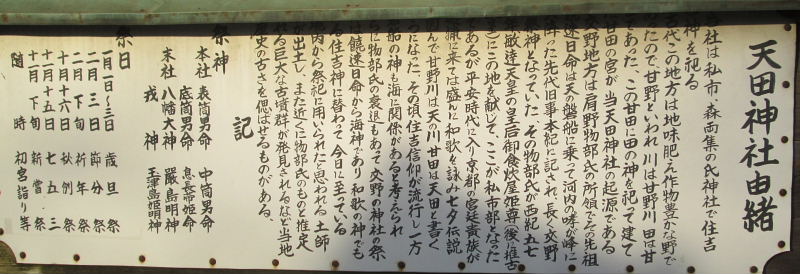 天田神社由緒
当社は私市、森両集の氏神社で住吉
神を祀る
古代この地方は地味肥え作物豊かな野で
らったので甘野といわれ川は甘野川 田は甘
であった、この甘田に田の神を祀って建て
甘田の宮が当天田神社の起源である
交野地方は肩野物部氏の所領でその先祖
速日命は天の磐船に乗って河内の哮が峰に
降った先代旧事本紀に記され、長く交野
神となっていた、その物部氏が西紀五七
敏達天皇の皇后御食炊屋姫尊後に推古
にこの地を献じて、ここが私市部となった
あるが平安時代に入り京都の宮廷貴族が
猟に来ては盛んに和歌を詠み七夕伝説
んで甘野川は天の川 甘田は天田と書く
うになった、その頃住吉信仰が流行し一方
船の神も海に関係があると考えられ
らに物部氏の衰退もあって交野の神社の祭
饒速日命から海神であり和歌の神でも
る住吉神に替わって今日に至っている
内から祭祀に用いられたと思われる土師
出土し、また近くに物部氏のものと推定
る巨大な古墳群が発見されるなど当地
史の古さを偲ばせるものがある、
記
祭神
本社 表筒男命 中筒男命
底筒男命 息長帯姫命
末社 八幡大神 嚴島明神
戎神 玉津島姫明神
祭日
一月一日〜三日 歳旦祭
二月三日 節分祭
二月下旬 祈年祭
十月十六日 秋例祭
十一月十五日 七五三
十一月下旬 新嘗祭
随時 初宮詣り等